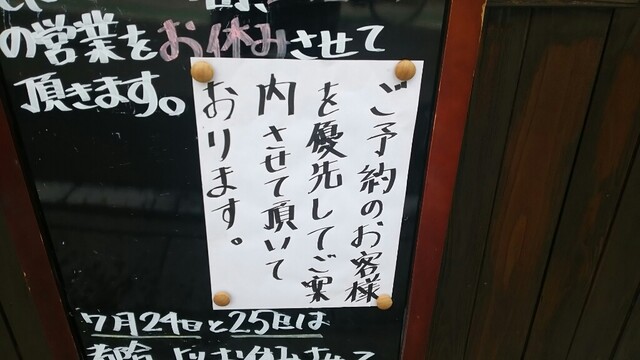 の営業をお休みさせて
頂きます。
ご予約のお客様
を優先してご案
内させて頂いて
おります。
7月24日と25日は